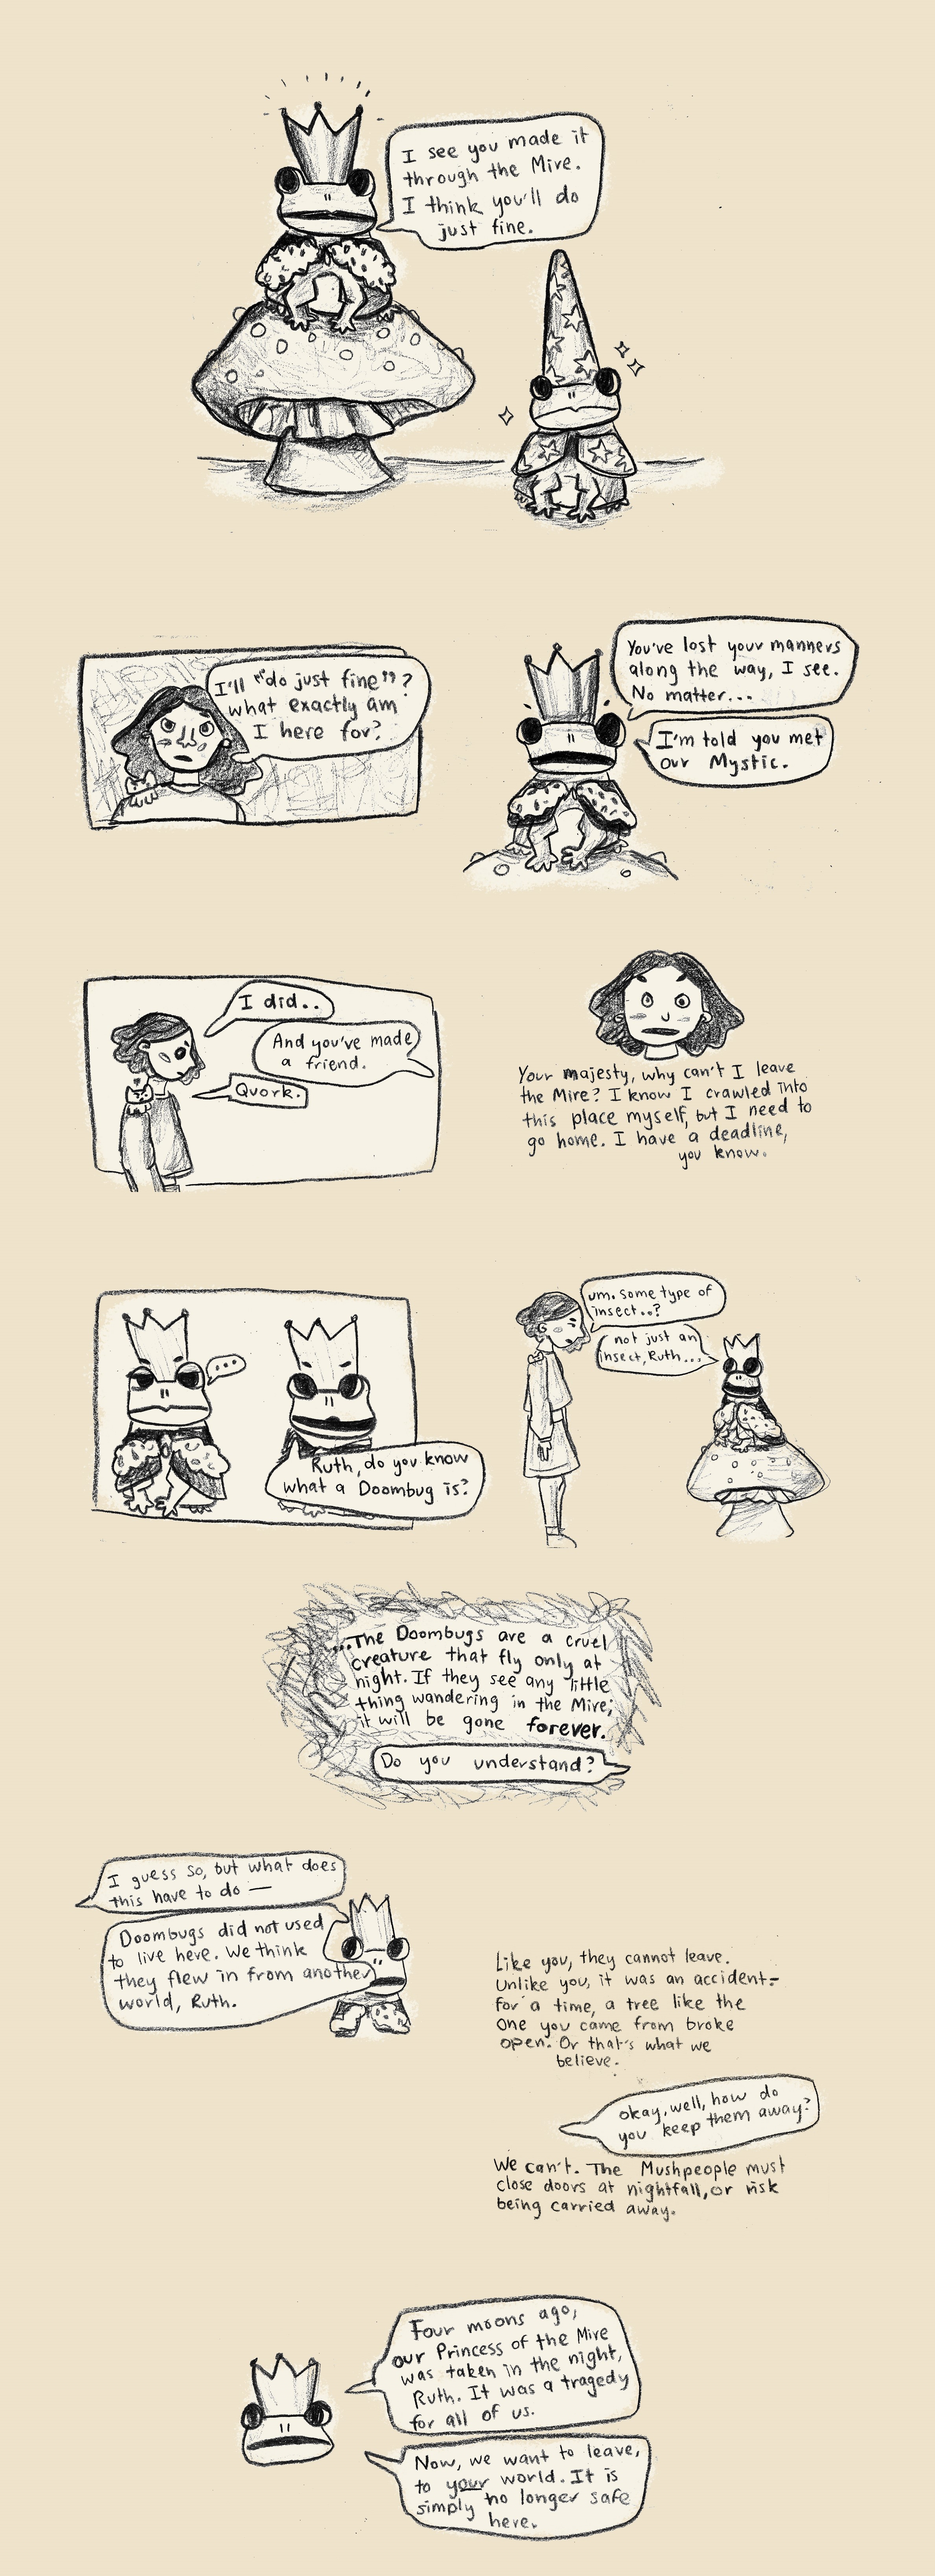 I see you made it
through the Mire.
I think you'll do
just fine.
I'll "do just fine"?
what exactly am
I here for?
You've lost your manners
along the way, I see.
No matter...
I'm told you met
our Mystic.
I did..
And you've made
a friend.
Quork.
Your majesty, why can't I leave
the Mire? I know I crawled into
this place myself, but I need to
go home. I have a deadline,
you know.
...
Ruth, do you know
what a Doombug is?
um. some type of
insect..?
not just an
insect, Ruth...
...The Doombugs are a cruel
creature that fly only at
night. If they see any little
thing wandering in the Mire;
it will be gone forever.
Do you understand?
I guess so, but what does
this have to do —
Doombugs did not used
to live here. We think
they flew in from another
world, Ruth.
Like you, they cannot leave.
Unlike you, it was an accident-
for a time, a tree like the
one you came from broke
open. Or that's what we
believe.
okay, well, how do
you keep them away?
We can't. The Mushpeople must
close doors at nightfall, or risk
being carried away.
Four moons ago,
our Princess of the Mire
was taken in the night,
Ruth. It was a tragedy
for all of us.
Now, we want to leave,
to your world. It is
simply no longer safe
here.